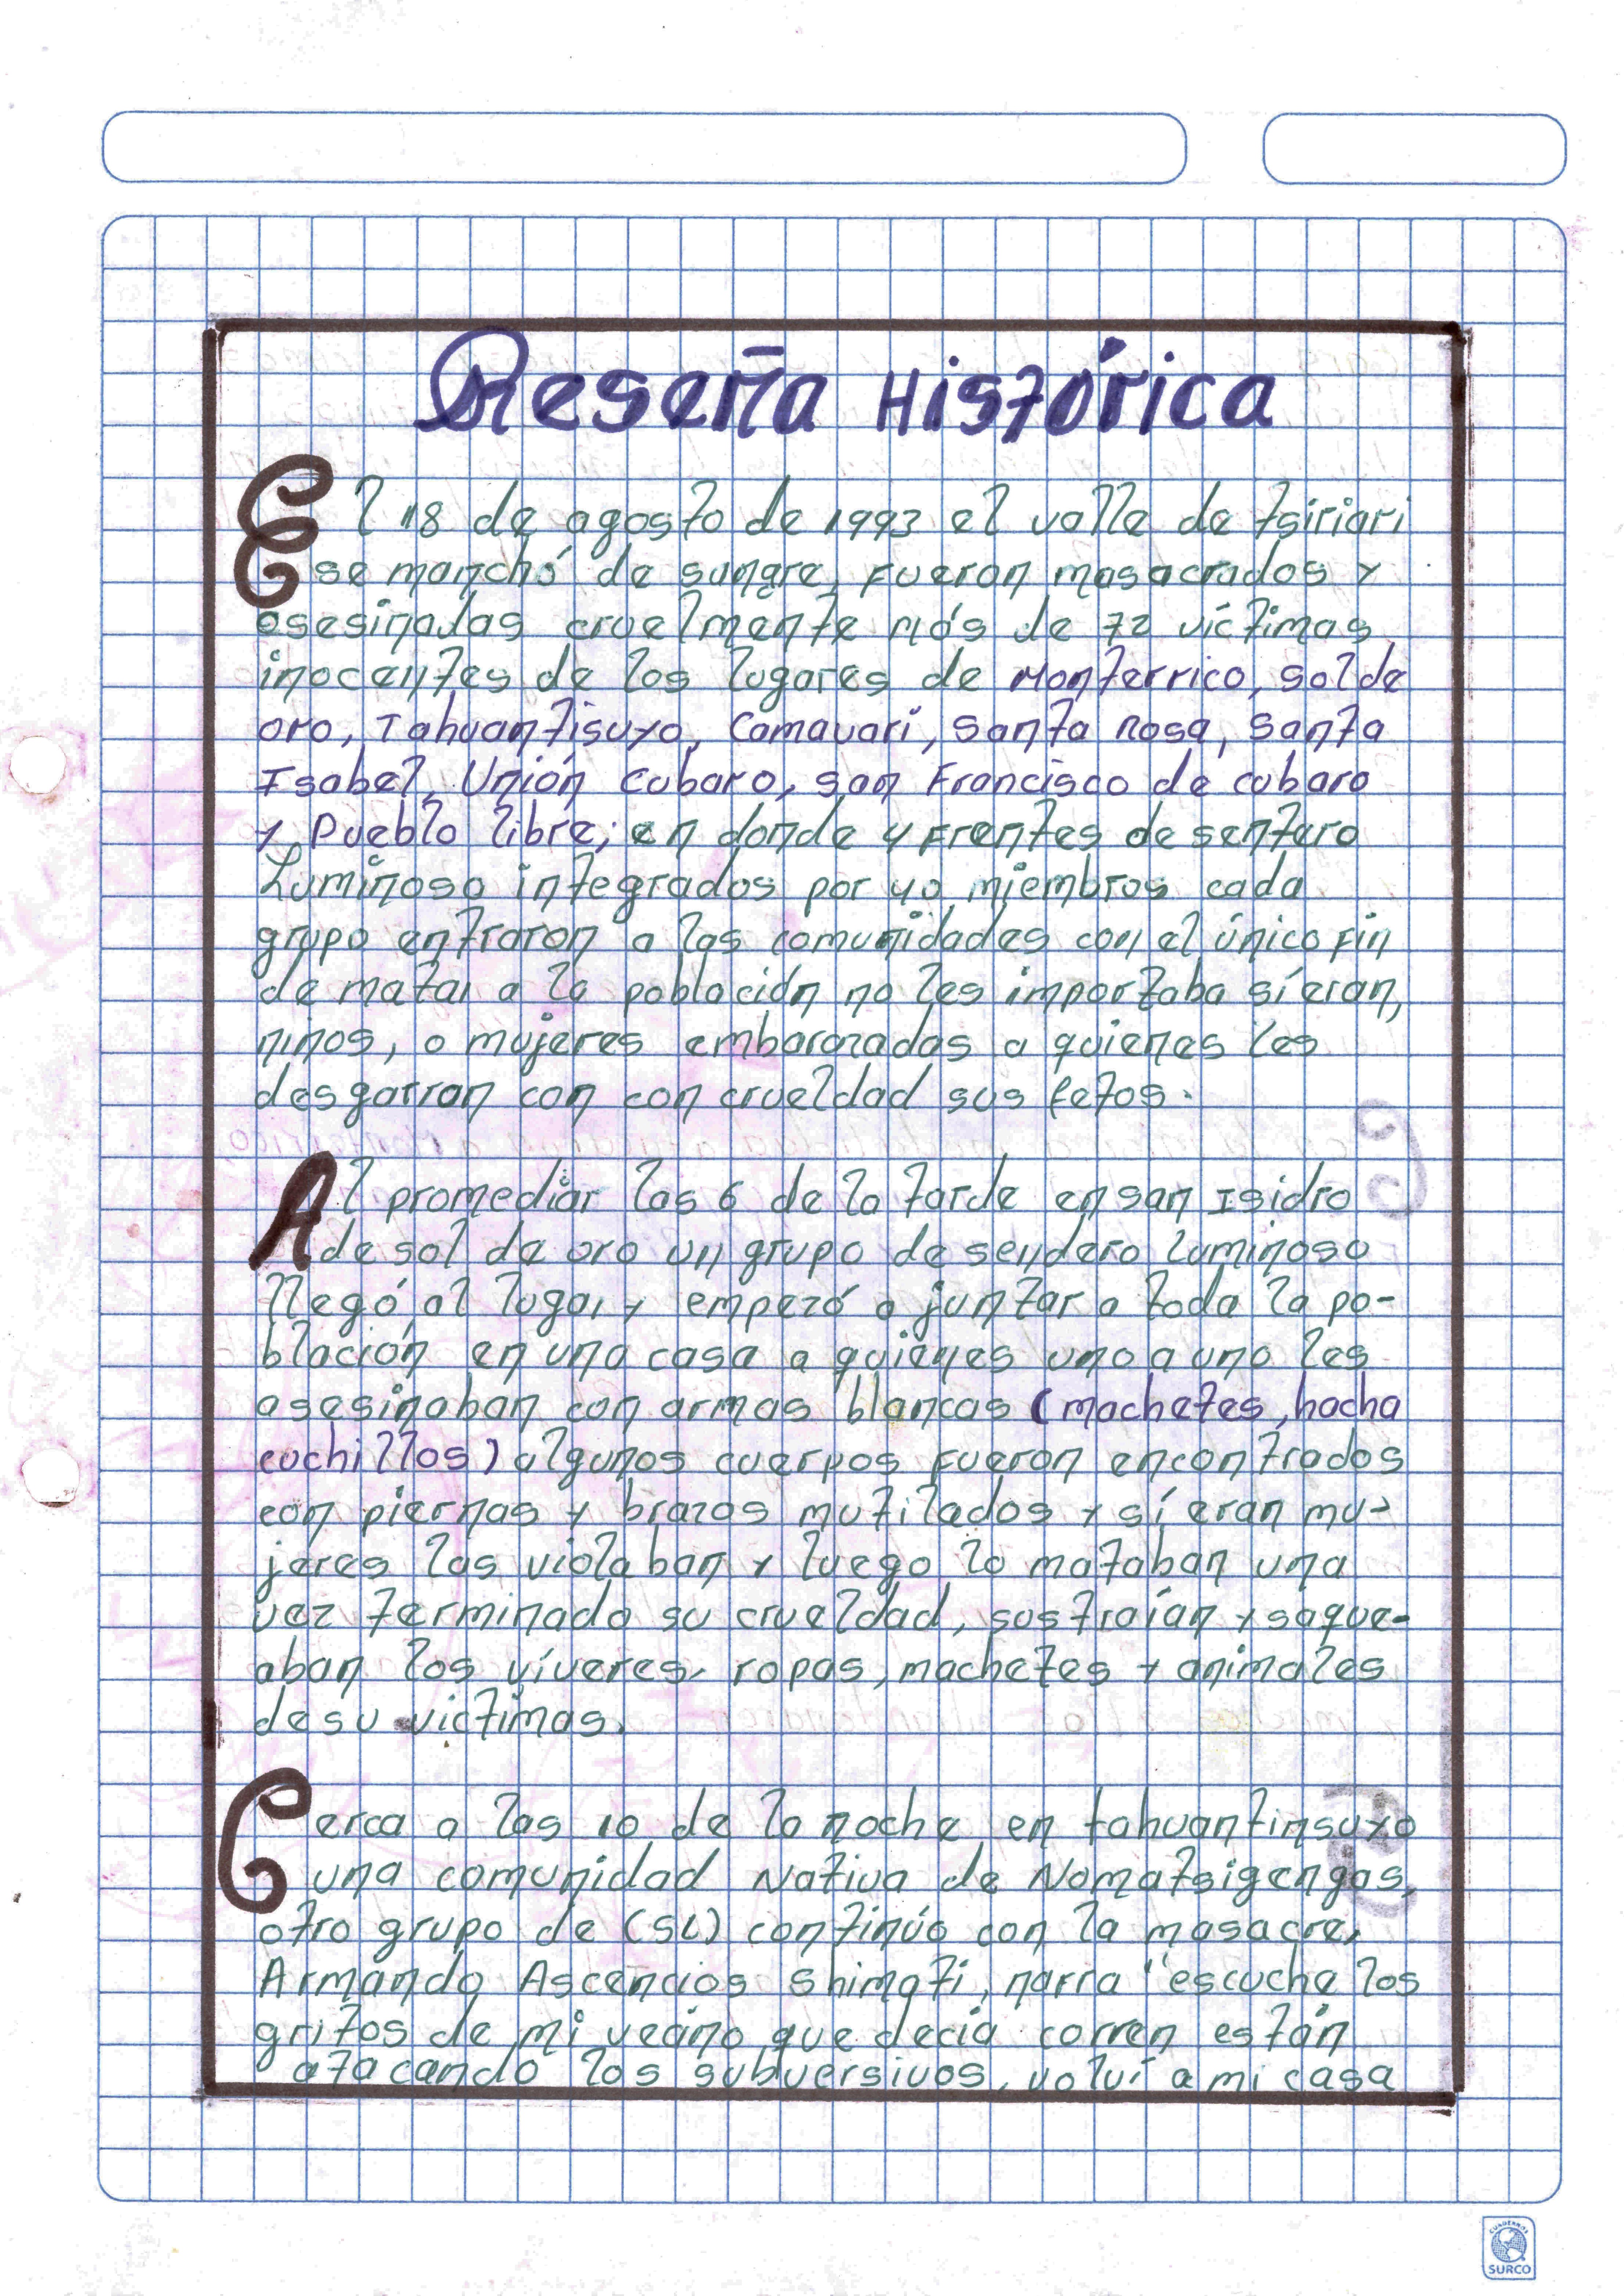 Reseña Histórica
El 18 de agosto de 1993 el valle de tsiriari
se manchó de sangre, fueron masacrados y
asesinadas cruelmente más de 72 víctimas
inocentes de los lugares de Monterrico, sol de
oro, Tahuantisuyo, Camavari, Santa Rosa, Santa
Isabel, Unión Cubaro, san Francisco de cubaro
y Pueblo libre; en donde 4 frentes de sentero
Luminoso integrados por 40 miembros cada
grupo entraron a las comunidades con el único fin
de matar a la población no les importaba sí eran,
niños, o mujeres embarazadas a quienes les
desgarran con con crueldad sus fetos.
Al promediar las 6 de la tarde en san Isidro
de sol de oro un grupo de sendero luminoso
llegó al lugar y empezó a juntar a toda la po-
blación en una casa a quienes uno a uno les
asesinaban con armas blancas (machetes, hacha
cuchillos) algunos cuerpos fueron encontrados
con piernas y brazos mutilados y sí eran mu-
jeres las violaban y luego lo mataban una
vez terminado su crueldad, sustraían y saque-
aban los víveres, ropas, machetes y animales
de su victimas.
Cerca a las 10 de la noche en tahuantinsuyo
una comunidad Nativa de Nomatsigengas,
otro grupo de (SL) continúo con la masacre,
Armando Ascencios Shimati, narra "escuche los
gritos de mi vecino que decía corren están
atacando los subversivos, volví a mi casa
CUADERNOS
SURCO